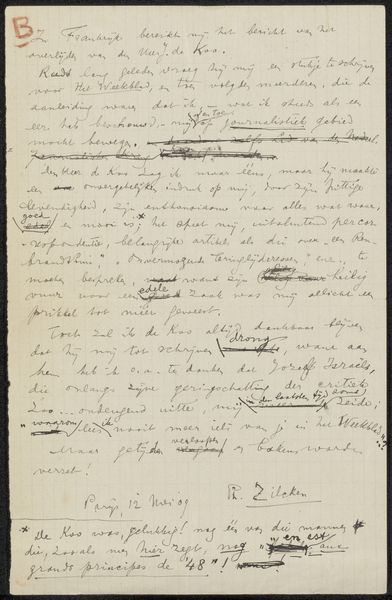 B
In Frankrijk bereikt mij het bericht van het
overlijden van den Heer J. de Koo.
Reeds lang geleden vroeg hij mij een stukje te schrijven
voor Het Weekblad, en toen volgden meerderen, die de
aanleiding waren dat ik, wat ik steeds als een
eer heb beschouwd, mij af en toe op journalistiek gebied
mocht bewegen.
Den Heer de Koo zag ik maar eens, maar hij maakte
een onvergetelijke indruk op mij, door zijn pittige
levendigheid, zijn enthousiasme voor alles wat waar,
goed en mooi is;* het speet mij, uitsluitend per cor-
respondentie, belangrijke artikels als die over een Rem-
brandthuis, onvermogende teringlijderessen, enz. te
moeten bespreken, want zijn heilig
vuur voor een edele zaak was mij allicht een
prikkel tot meer geweest.
Toch zal ik de Koo altijd dankbaar blijven
dat hij mij tot schrijven drong, want aan
hem heb ik o.a. te danken dat Jozef Israëls,
die onlangs zijne geringschatting der critiek
zoo ... ondeugend uitte, mij den laatsten tijd zeide:
"waarom lees ik nooit meer iets van je in het Weekblad?"
Maar getijden verloopen en bakens worden
verzet!
Parijs, 12 Mei 09 Ph. Zilcken
* De Koo was, gelukkig! nog één van die mannen
die, zooals men hier zegt, "en est
aux grands principes de '48"!